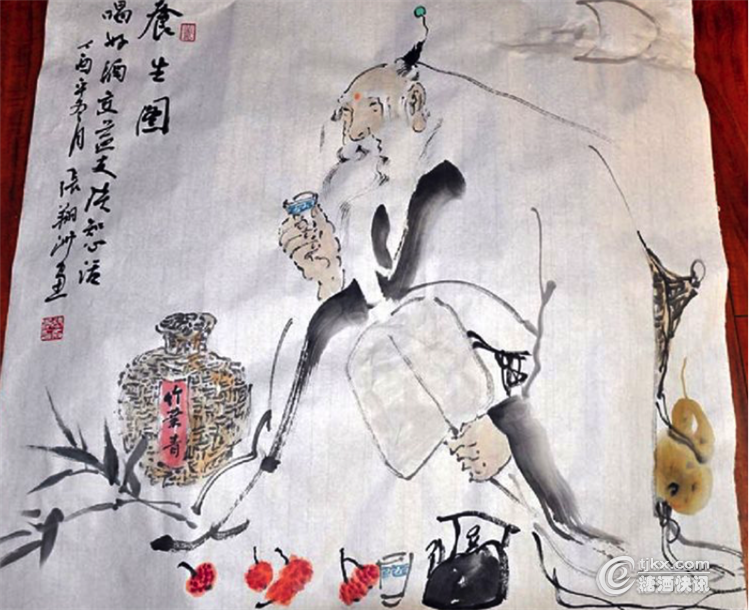 養生图
喝好酒交益友清知心话
丁酉年冬月 張翔洲画
竹葉青
tjkx.com
糖酒快讯